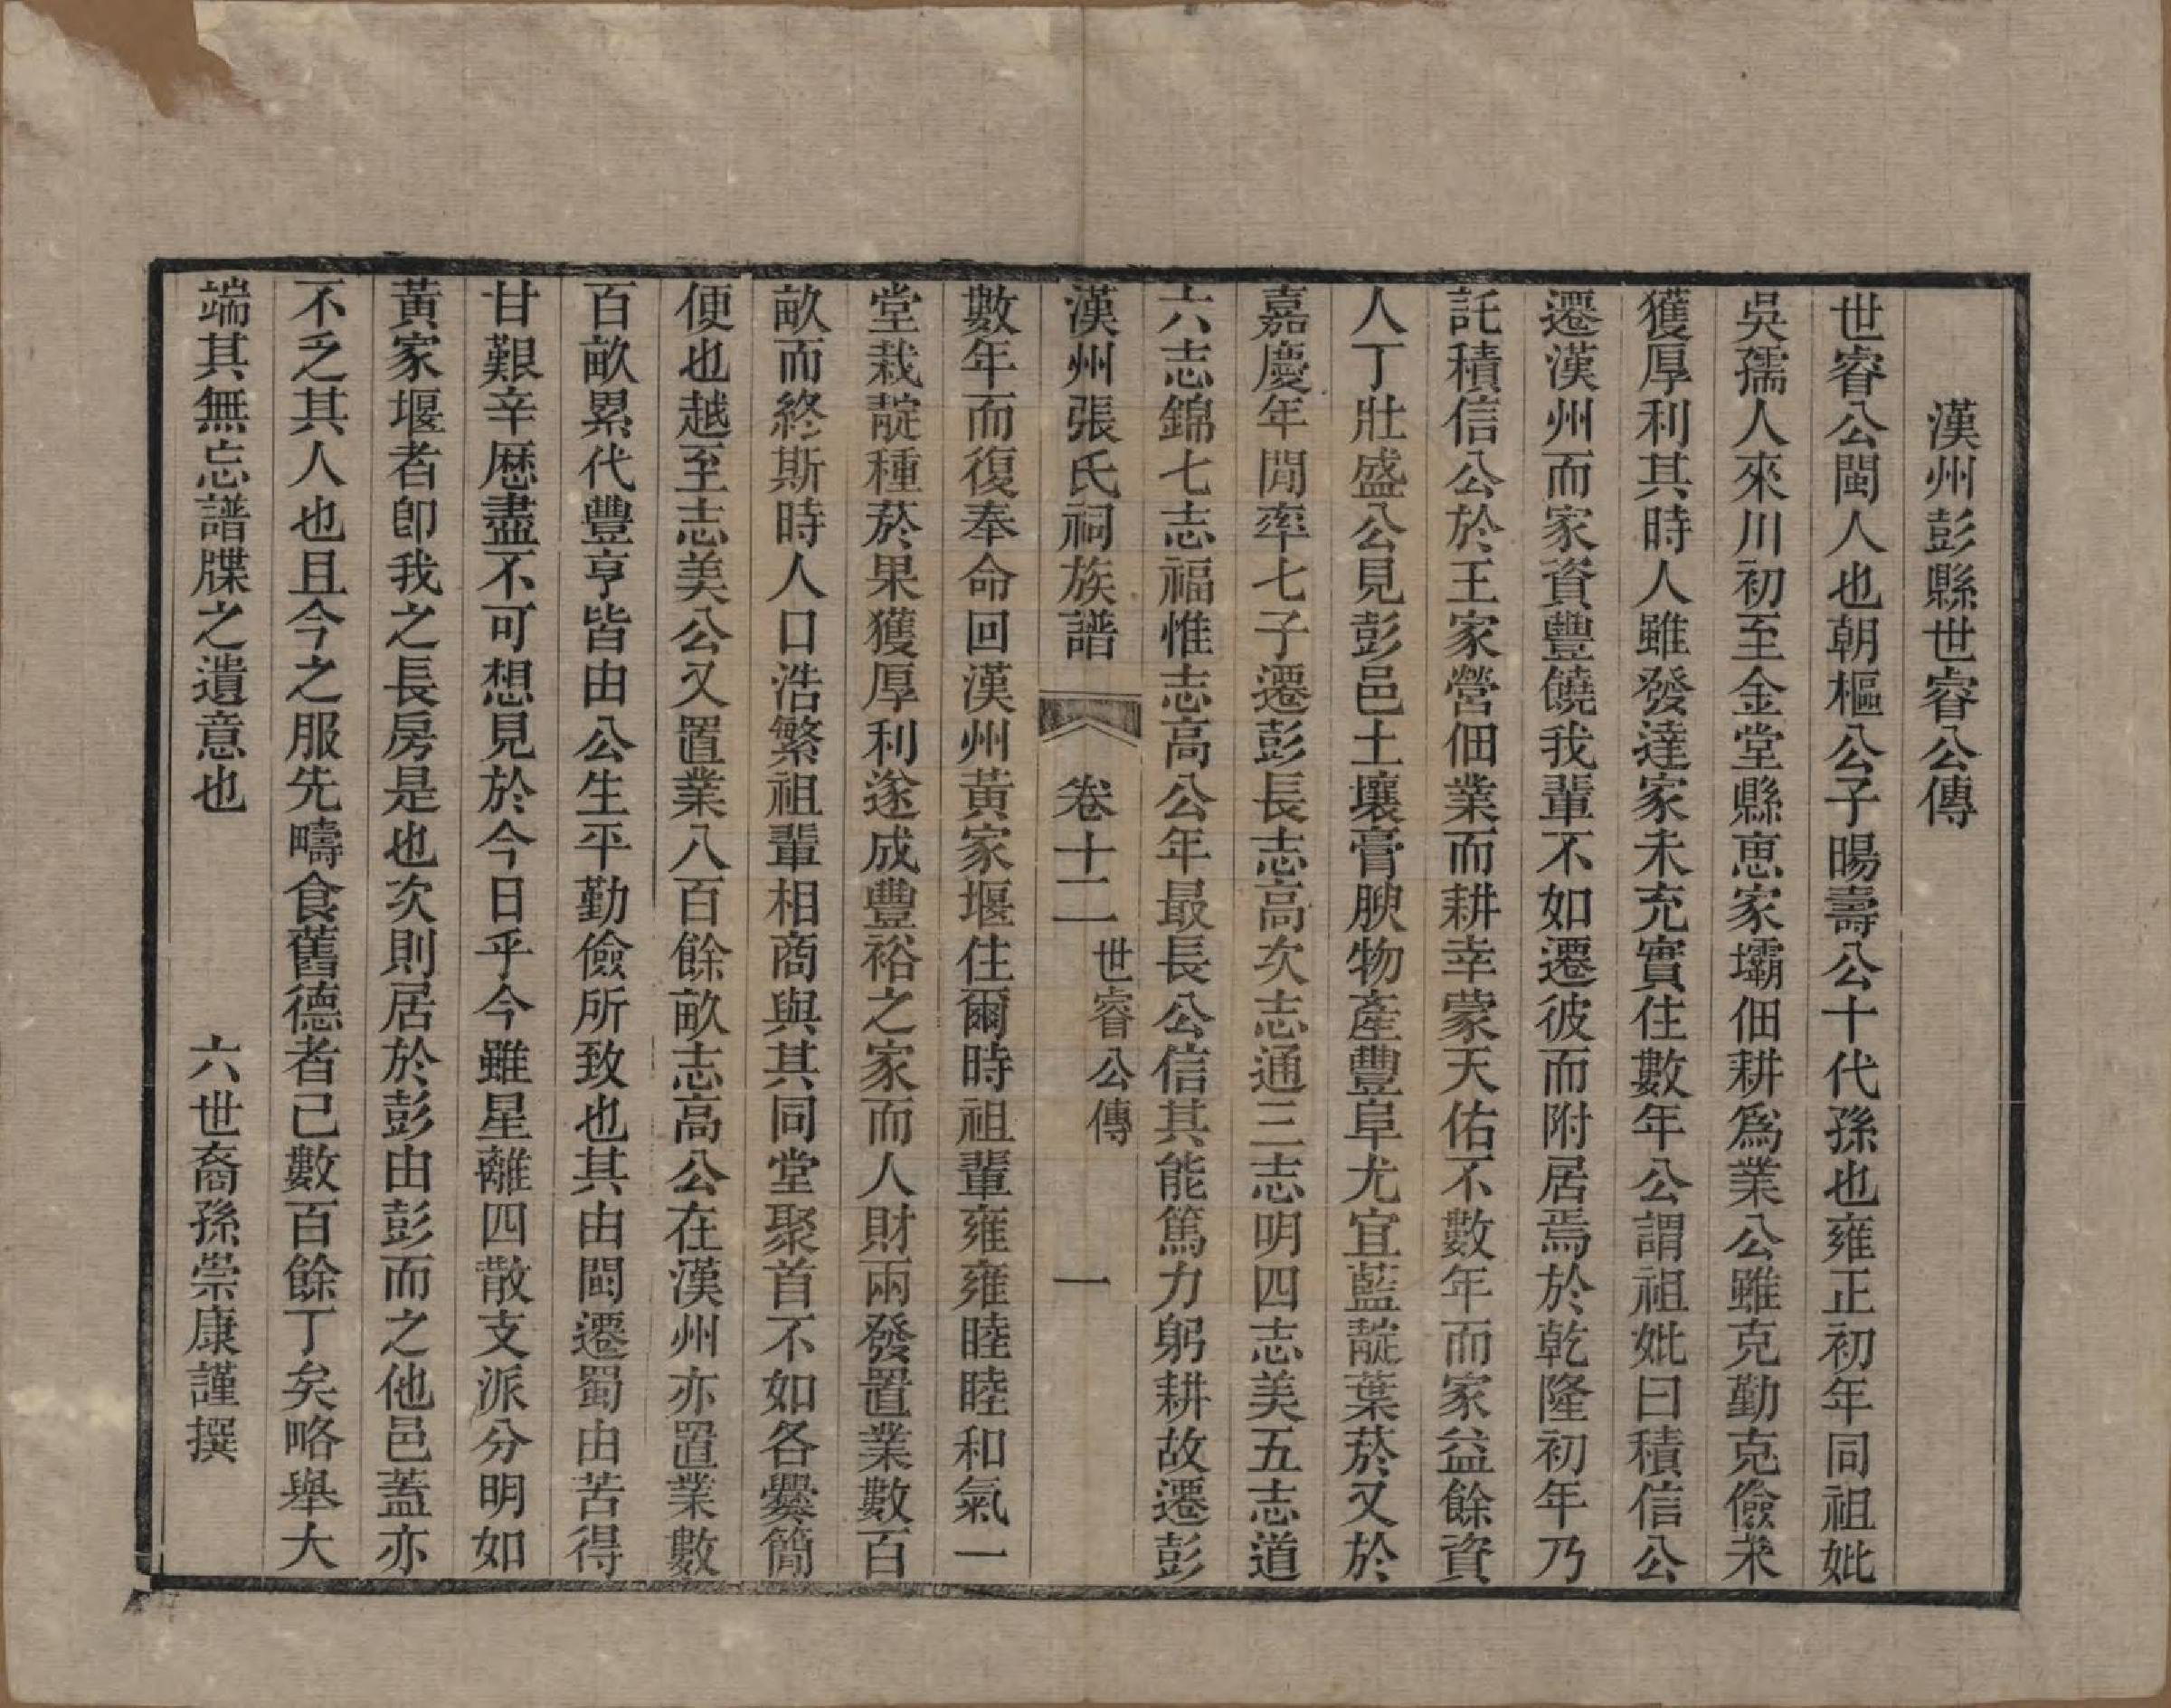 漢州彭縣世睿公傳
世睿公閩人也朝樞公子暘壽公十代孫也雍正初年同祖妣
吳孺人來川初至金堂縣恵家壩佃耕爲業公雖克勤克儉未
獲厚利其時人雖發達家未充實住數年公謂祖妣曰積信公
遷漢州而家資豐饒我輩不如遷彼而附居焉於乾隆初年乃
託積信公於王家營佃業而耕幸蒙天佑不數年而家益餘資
人丁壯盛公見彭邑土壤膏腴物產豐阜尤宜藍靛葉菸又於
嘉慶年閒率七子遷彭長志高次志通三志明四志美五志道
六志錦七志福惟志高公年最長公信其能篤力躬耕故遷彭
漢州張氏祠族譜 卷十二 世睿公傳 一
數年而復奉命回漢州黃家堰住爾時祖輩雍雍睦睦和氣一
堂栽靛種菸果獲厚利遂成豐裕之家而人財兩發置業數百
畝而終斯時人口浩繁祖輩相商與其同堂聚首不如各爨簡
便也越至志美公又置業八百餘畝志高公在漢州亦置業數
百畝累代豐亨皆由公生平勤儉所致也其由閩遷蜀由苦得
甘艱辛歷盡不可想見於今日乎今雖星離四散支派分明如
黃家堰者卽我之長房是也次則居於彭由彭而之他邑蓋亦
不乏其人也且今之服先疇食舊德者已數百餘丁矣略舉大
端其無忘譜牒之遺意也 六世裔孫崇康謹撰